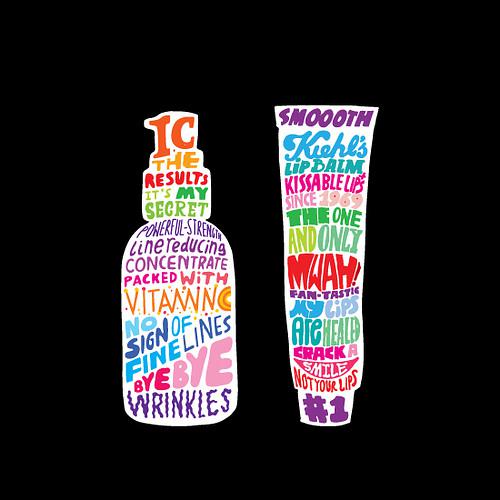 1C
THE
RESULTS
IT'S MY
SECRET
POWERFUL-STRENGTH
Line reducing
CONCENTRATE
PACKED WITH
VITAMIN C
NO
SIGN OF
FINE LINES
BYE BYE
WRINKLES
SMOOOTH
Kiehl's
LIP BALM
KISSABLE LIPS
SINCE 1969
THE ONE
AND ONLY
MWAH!
FAN-TASTIC
MY LIPS
ARE HEALED
CRACK A
SMILE
NOT YOUR LIPS
#1